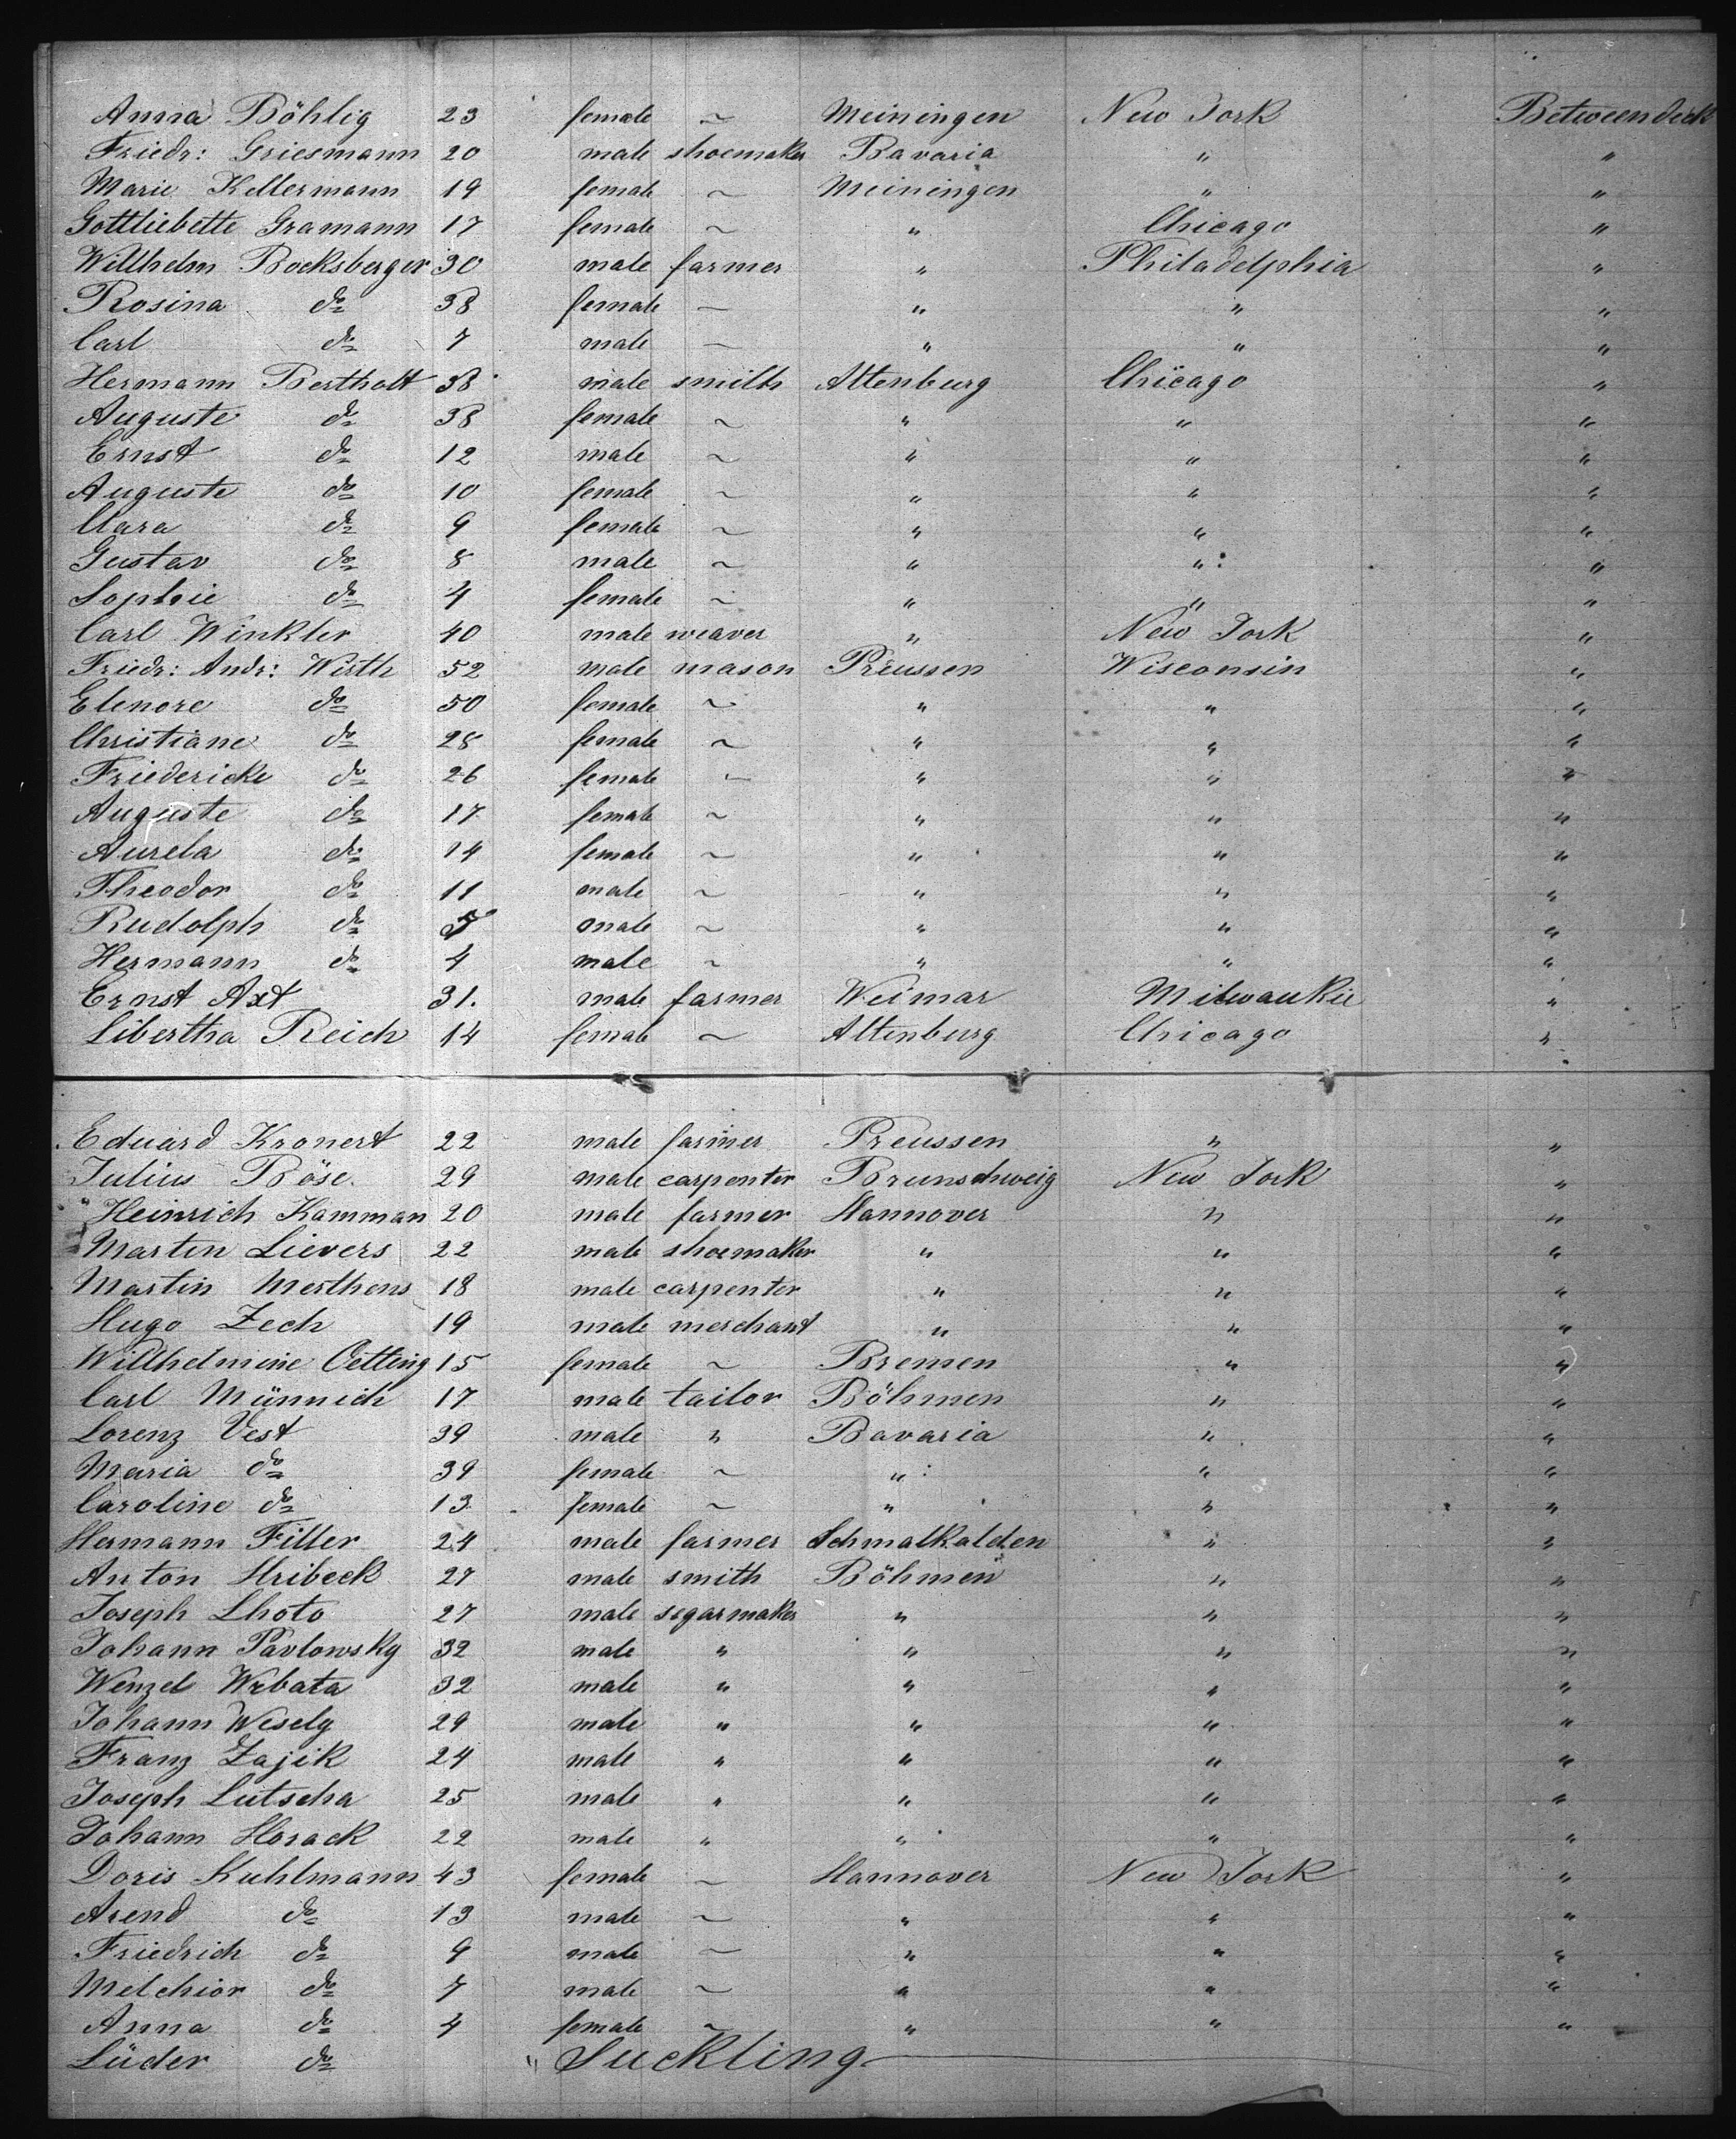 Anna Böhlig 23 female ~ Meiningen New York Between deck
Friedr: Griesmann 20 male shoemaker Bavaria " "
Marie Kellermann 19 female ~ Meiningen " "
Gottliebette Gramann 17 female ~ " Chicago "
Willhelm Bocksberger 30 male farmer " Philadelphia "
Rosina do 38 female — " " "
Carl do 7 male — " " "
Hermann Bertholt 38 male smith Altenburg Chicago "
Auguste do 38 female ~ " " "
Ernst do 12 male ~ " " "
Auguste do 10 female ~ " " "
Clara do 9 female ~ " " "
Gustav do 8 male ~ " " "
Sophie do 4 female ~ " " "
Carl Winkler 40 male weaver " New York "
Friedr: Andr: Wirth 52 male mason Preussen Wisconsin "
Elenore do 50 female ~ " " "
Christiane do 28 female ~ " " "
Friedericke do 26 female ~ " " "
Auguste do 17 female ~ " " "
Aurela do 14 female ~ " " "
Theodor do 11 male ~ " " "
Rudolph do male ~ " " "
Hermann do 4 male ~ " " "
Ernst Axt 31. male farmer Weimar Milwaukie "
Libertha Reich 14 female ~ Altenburg Chicago "
Eduard Kronert 22 male farmer Preussen " "
Julius Böse 29 male carpenter Brunschweig New York "
" Heinrich Kamman 20 male farmer Hannover " "
Martin Lievers 22 male shoemaker " " "
Martin Merthens 18 male carpenter " " "
Hugo Zech 19 male merchant " " "
Willhelmine Oetting 15 female ~ Bremen " "
Carl Münnich 17 male tailor Böhmen " "
Lorenz Vest 39 male " Bavaria " "
Maria do 39 female ~ " " "
Caroline do 13 female ~ " " "
Hermann Filler 24 male farmer Schmalkalden " "
Anton Hribeck 27 male smith Böhmen " "
Joseph Lhoto 27 male segarmaker " " "
Johann Pavlowsky 32 male " " " "
Wenzel Wrbata 32 male " " " "
Johann Wesely 29 male " " " "
Franz Zajik 24 male " " " "
Joseph Lutscha 25 male " " " "
Johann Horack 22 male " " " "
Doris Kuhlmann 43 female ~ Hannover New York "
Arend do 13 male ~ " " "
Friedrich do 9 male ~ " " "
Melchior do 7 male ~ " " "
Anna do 4 female ~ " " "
Lüder do " Suckling